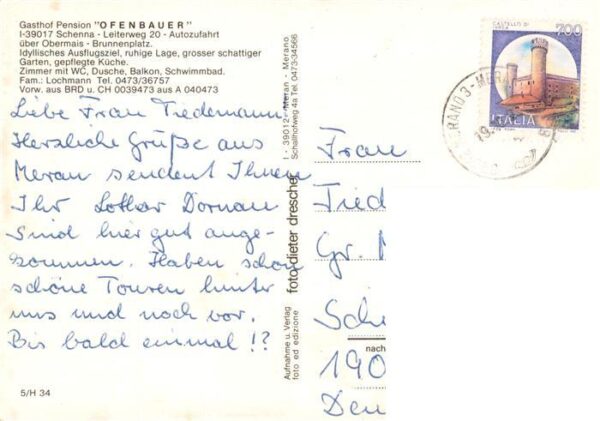 Gasthof Pension "OFENBAUER"
I-39017 Schenna - Leiterweg 20 - Autozufahrt
über Obermais - Brunnenplatz.
Idyllisches Ausflugsziel, ruhige Lage, grosser schattiger
Garten, gepflegte Küche.
Zimmer mit WC, Dusche, Balkon, Schwimmbad.
Fam.: Lochmann Tel. 0473/36757
Vorw. aus BRD u. CH 0039473 aus A 040473
Liebe Frau Tiedemann
Herzliche Grüße aus
Meran sendent Ihnen
Ihr Lothar Dornau
Sind hier gut ange-
kommen. Haben schon
schöne Touren hinter
uns und noch vor.
Bis bald einmal!?
5/H 34
Aufnahme u. Verlag
foto ed edizione
foto-dieter drescher
I - 39012 - Meran - Merano
Schallhofweg 4a Tel. 0473-34566
CASTELLO DI
700
ITALIA
MERANO 3 - MERA
19.
Frau
Tied
Gr.
Sch
nach
190
Den